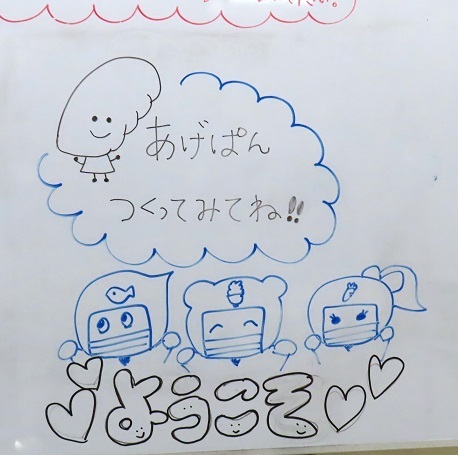 あげぱん
つくってみてね!!
ようこそ